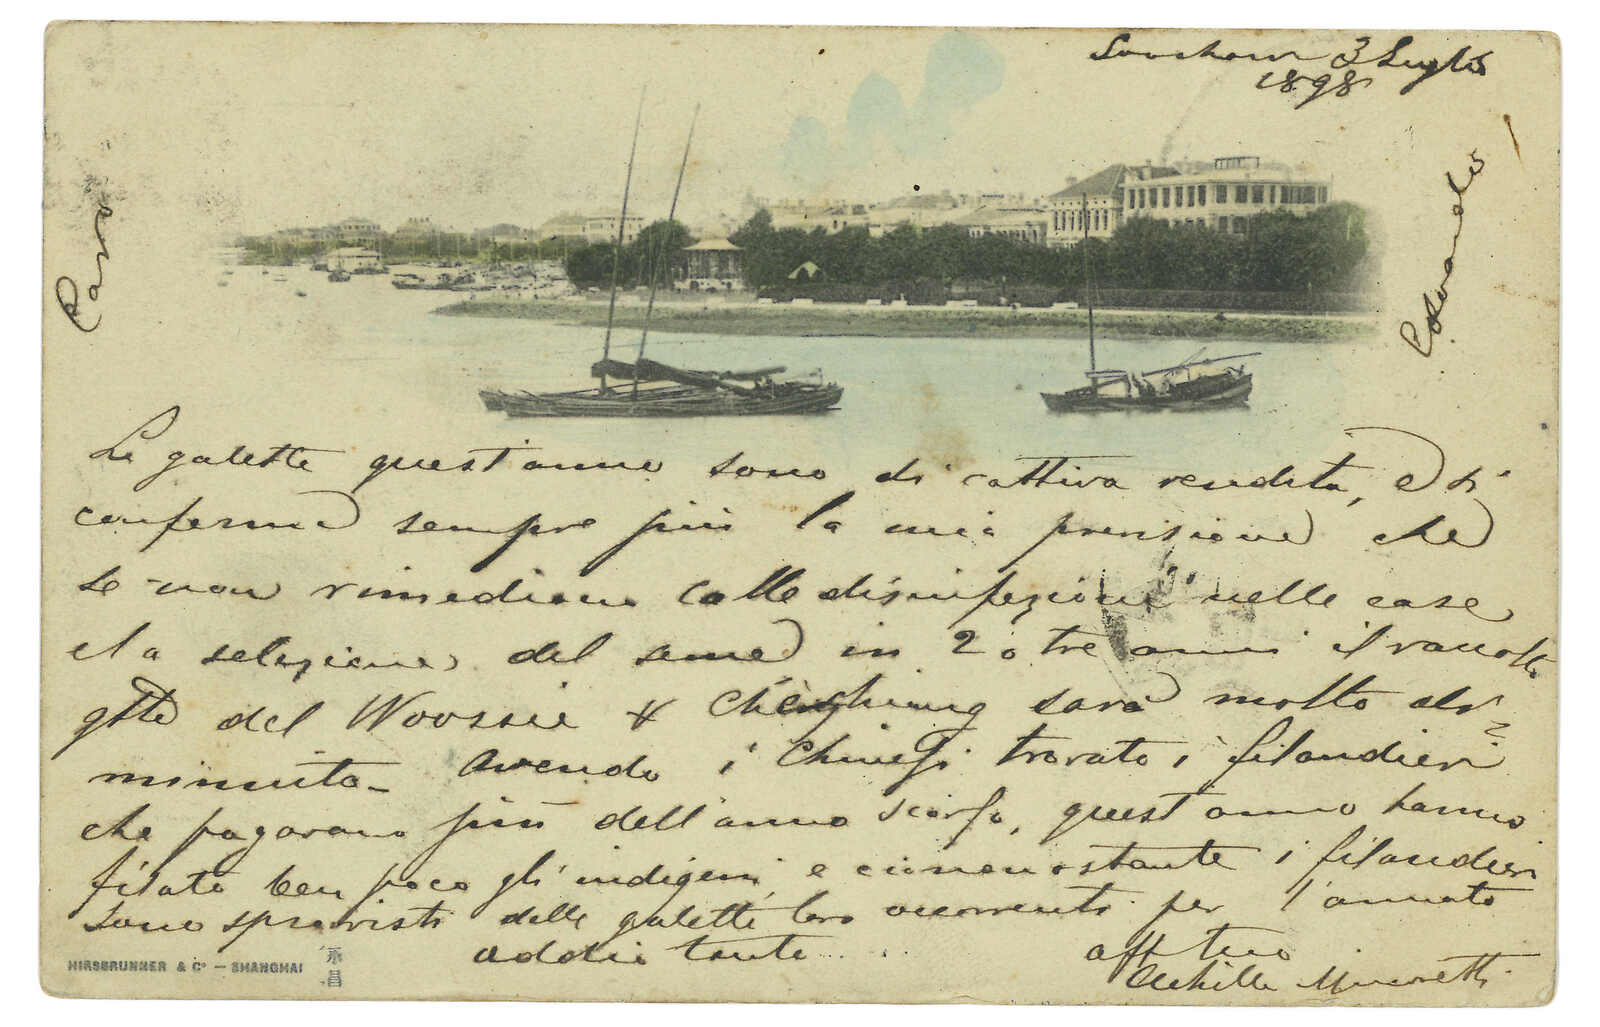 Soochow 3 Luglio
1898
Caro
Corrado
Le galette quest'anno sono di cattiva rendita, e si
conferma sempre più la mia previsione che
se non rimediano colle disinfezioni nelle case
e la selezione del seme in 2 o tre anni il raccolto
gtte del Woossie & sarà molto di=
minuito - Avendo i Chinesi trovato i filandieri
che pagavano più dell'anno scorso, quest'anno hanno
filato ben poco gli indigeni, e ciononostante i filandieri
sono sprovvisti delle galette loro occorrenti per l'annata
addio tante ... aff tuo
Achille
HIRSBRUNNER & Co - SHANGHAI
永昌